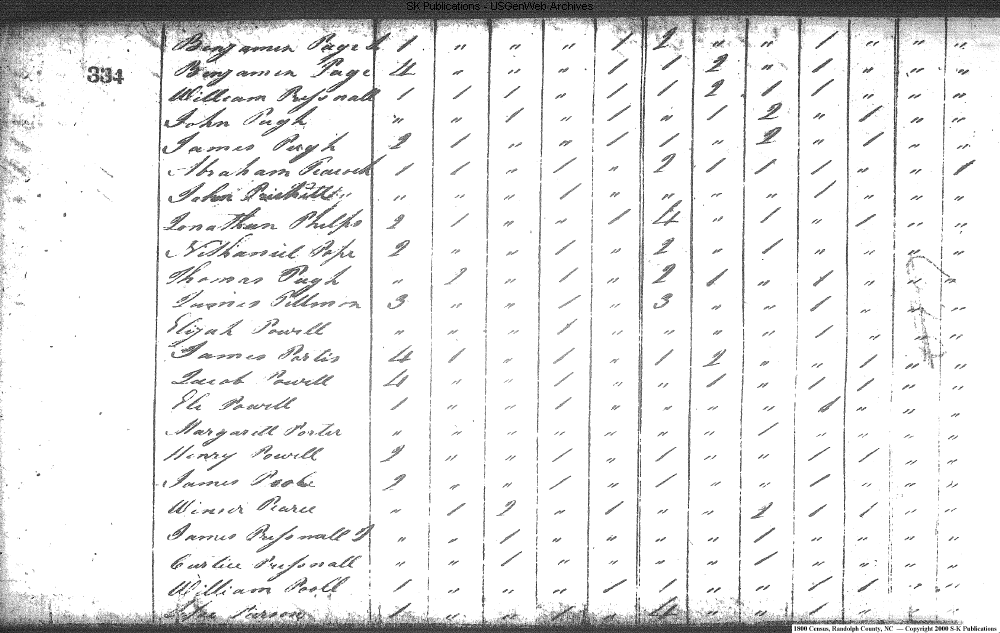 SK Publications - USGenWeb Archives
Benjamin 1 " " " 1 2 " " 1 " " "
334
Benjamin Page 4 " " " 1 1 2 " 1 " " "
William Pressnall 1 1 1 " 1 1 2 1 1 " " "
John Pugh " " 1 " 1 " 1 2 " 1 " "
James Pugh 2 1 " " 1 1 " 2 " 1 " "
Abraham Peacock 1 1 " 1 " 2 1 1 1 " " 1
John " " " 1 " " " " 1 " " "
Jonathan Phelps 2 1 " " 1 4 " 1 " 1 " "
Nathaniel Pope 2 " " 1 " 2 " 1 " " " "
Thomas Pugh " 2 " 1 " 2 1 " 1 " " "
James Tillmon 3 " " 1 " 3 " " 1 " " "
Elijah Powell " " " 1 " " " " 1 " " "
James Portis 4 1 " 1 " 1 2 " " 1 " "
Jacob Powell 4 " " 1 " " 1 " 1 1 " "
Eli Powell 1 " " 1 " " " " 1 " " "
Margarett Porter " " " " " " " 1 " " " "
Henry Powell 2 " " 1 " 1 " " 1 1 " "
James Poole 2 " " 1 " 1 " " 1 " " "
Winser Pearce " 1 2 " 1 " " 2 1 1 " "
James Pressnall " " 1 " " " " 1 " " " "
Curtice Pressnall " " 1 " " " " 1 " " " "
William Pooll 1 " " " 1 1 " " 1 1 " "
Pearson 1 " " 1 " 4 " " 1 " " "
1800 Census, Randolph County, NC — Copyright 2000 S-K Publications